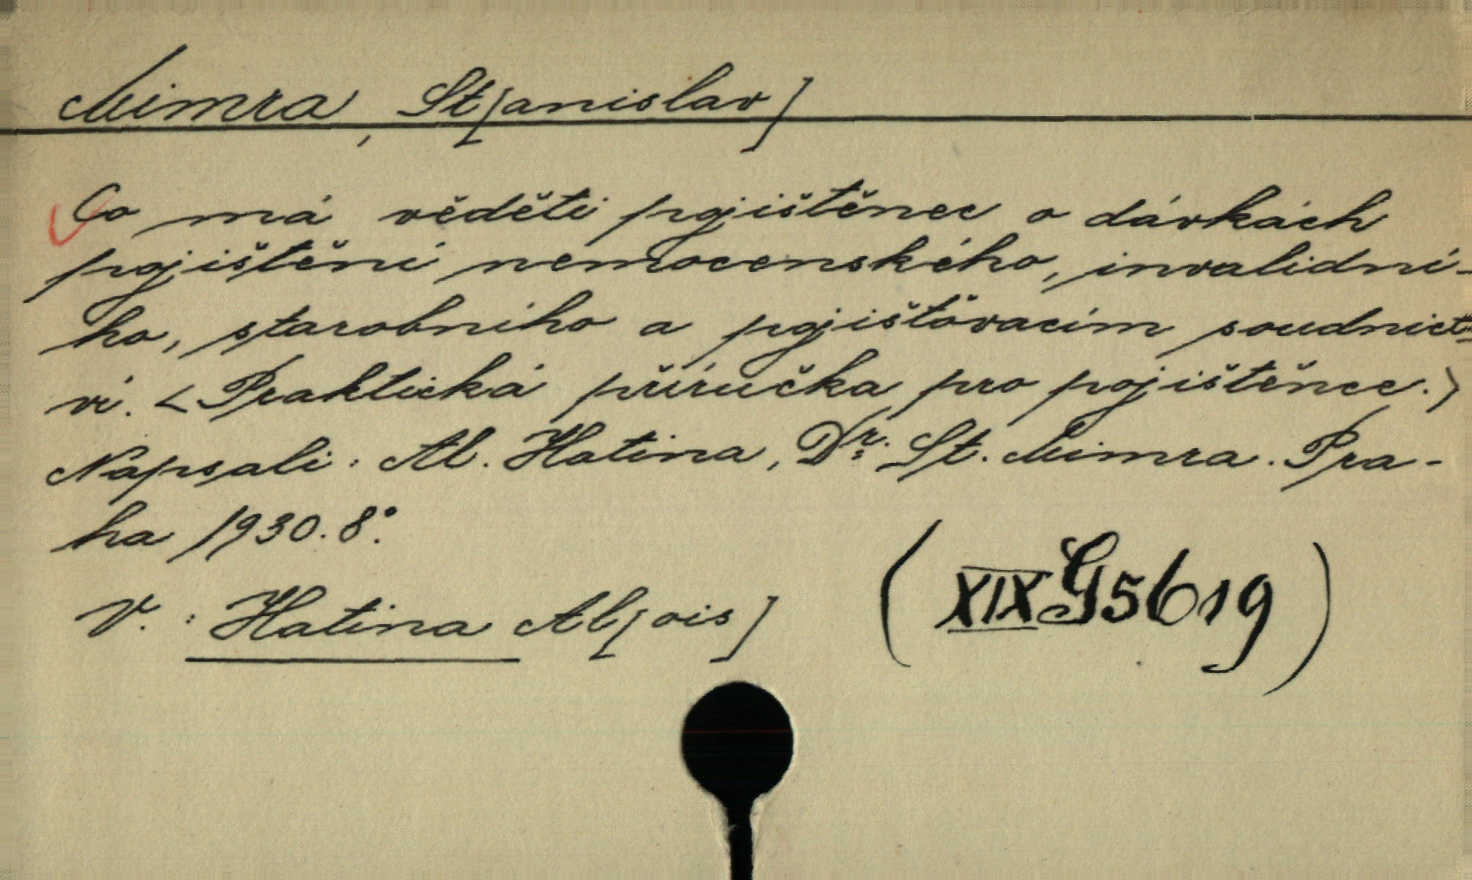 Mimra, St[anislav]
Co má věděti pojištěnec o dávkách
pojištění nemocenského, invalidní-
ho, starobního a pojišťovacím soudnict-
ví. <Praktická příručka pro pojištěnce.>
Napsali: Al. Hatina, Dr. St. Mimra. Pra-
ha 1930. 8°.
V.: Hatina Al[ois]
(XIX G 5619)